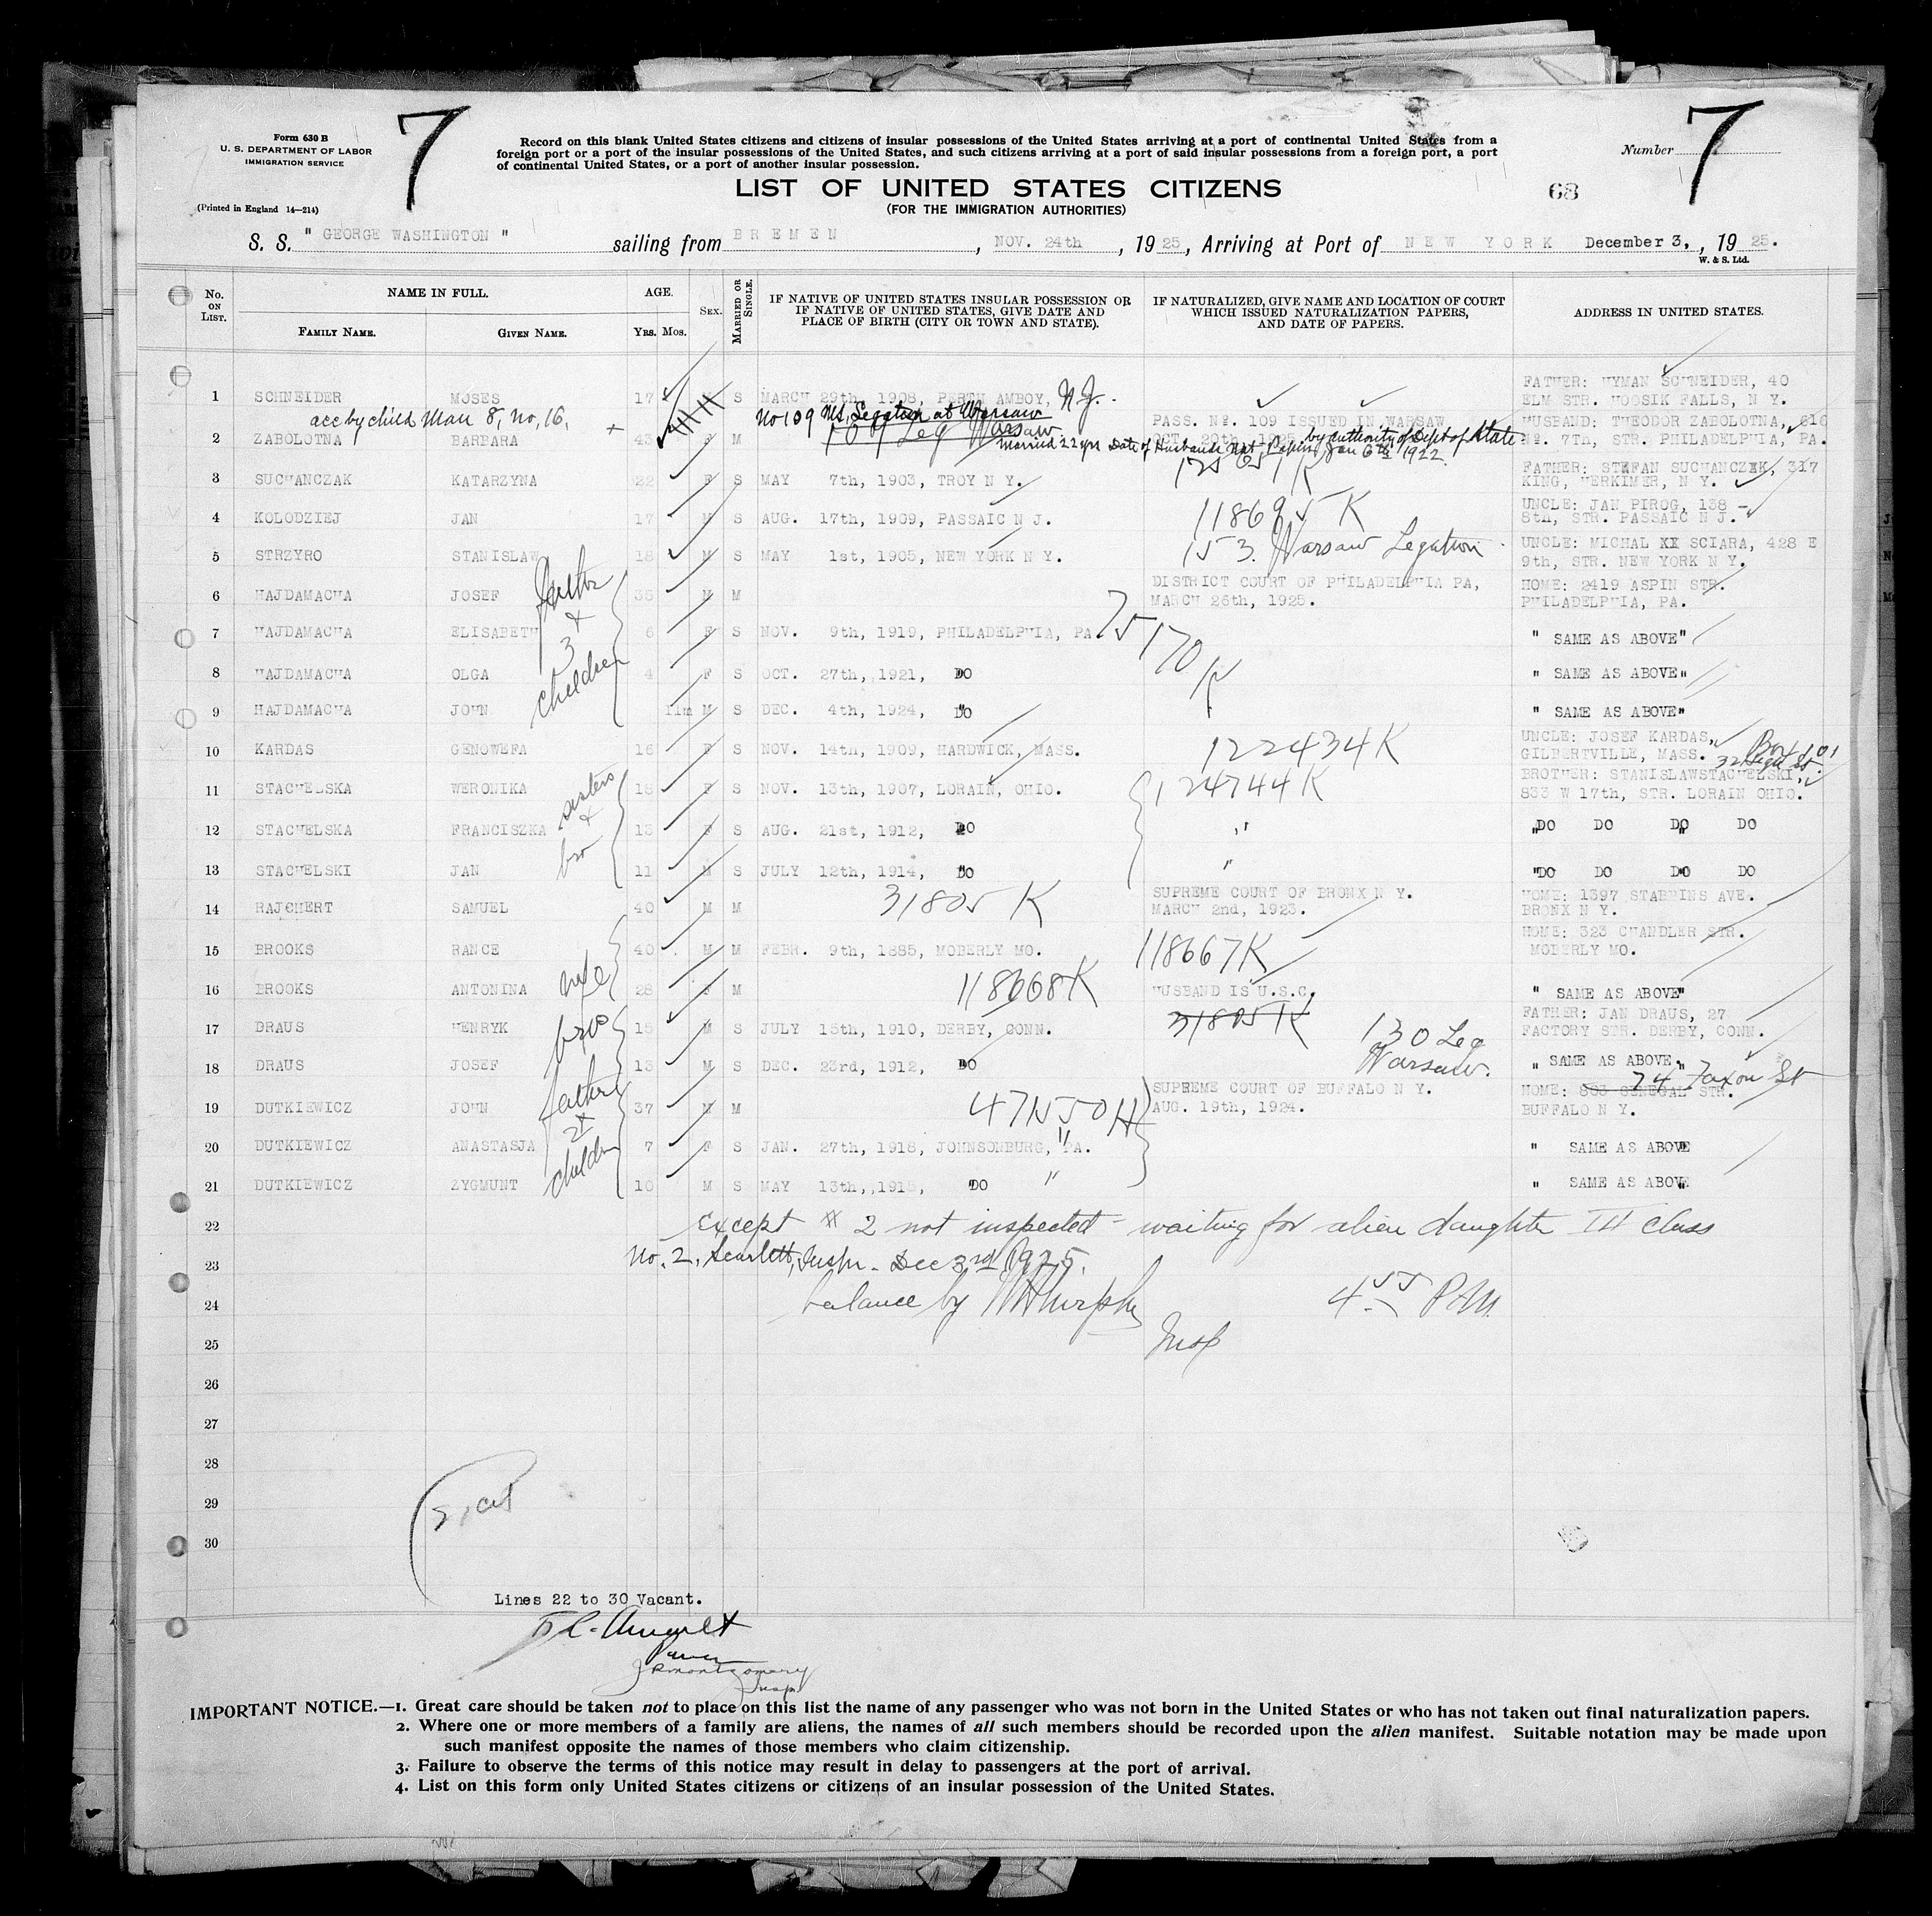 Form 630 B
U. S. DEPARTMENT OF LABOR
IMMIGRATION SERVICE
(Printed in England 14—214)
7
Record on this blank United States citizens and citizens of insular possessions of the United States arriving at a port of continental United States from a
foreign port or a port of the insular possessions of the United States, and such citizens arriving at a port of said insular possessions from a foreign port, a port
of continental United States, or a port of another insular possession.
Number
7
LIST OF UNITED STATES CITIZENS
68
(FOR THE IMMIGRATION AUTHORITIES)
S. S. " GEORGE WASHINGTON " sailing from BREMEN, NOV. 24th, 1925, Arriving at Port of NEW YORK December 3., 1925.
W. & S. Ltd.
No. ON LIST. NAME IN FULL. FAMILY NAME. GIVEN NAME. AGE. YRS. MOS. SEX. MARRIED OR SINGLE. IF NATIVE OF UNITED STATES INSULAR POSSESSION OR IF NATIVE OF UNITED STATES, GIVE DATE AND PLACE OF BIRTH (CITY OR TOWN AND STATE). IF NATURALIZED, GIVE NAME AND LOCATION OF COURT WHICH ISSUED NATURALIZATION PAPERS, AND DATE OF PAPERS. ADDRESS IN UNITED STATES.
1 SCHNEIDER MOSES 17 S MARCH 29th, 1908, PERTH AMBOY, N.J. FATHER: HYMAN SCHNEIDER, 40
ELM STR. HOOSIK FALLS, N. Y.
acc by child Man 8, No, 16.
No 109 Legation at Warsaw
PASS. Nº. 109 ISSUED IN WARSAW
HUSBAND: THEODOR ZABOLOTNA, 616
2 ZABOLOTNA BARBARA 43 F M 109 Leg Warsaw OCT. 20th, by authority of Dept of State Nº. 7th, STR. PHILADELPHIA, PA.
Married 22 yrs Date of Husbands Nat. Papers Jan 6th 1922
3 SUCHANCZAK KATARZYNA 22 F S MAY 7th, 1903, TROY N Y. FATHER: STEFAN SUCHANCZAK, 317
KING, HERKIMER, N. Y.
4 KOLODZIEJ JAN 17 M S AUG. 17th, 1909, PASSAIC N J. 118695 K UNCLE: JAN PIROG, 138 -
8th, STR. PASSAIC N J.
5 STRZYRO STANISLAW 18 M S MAY 1st, 1905, NEW YORK N Y. 153. Warsaw Legation UNCLE: MICHAL XX SCIARA, 428 E
9th, STR. NEW YORK N Y.
father
+
3
children
6 HAJDAMACHA JOSEF 35 M M DISTRICT COURT OF PHILADELPHIA PA,
MARCH 26th, 1925. HOME: 2419 ASPIN STR.
PHILADELPHIA, PA.
7 HAJDAMACHA ELISABETH 6 F S NOV. 9th, 1919, PHILADELPHIA, PA 75170 K " SAME AS ABOVE"
8 HAJDAMACHA OLGA 4 F S OCT. 27th, 1921, DO " SAME AS ABOVE"
9 HAJDAMACHA JOHN 11m M S DEC. 4th, 1924, DO " SAME AS ABOVE"
10 KARDAS GENOWEFA 16 F S NOV. 14th, 1909, HARDWICK, MASS. 122434 K UNCLE: JOSEF KARDAS,
GILBERTVILLE, MASS. Box 101
32 High St.
sisters
+
bro
11 STACHELSKA WERONIKA 18 F S NOV. 13th, 1907, LORAIN, OHIO. 124744 K BROTHER: STANISLAWSTACHELSKI,
833 W 17th, STR. LORAIN OHIO.
12 STACHELSKA FRANCISZKA 13 F S AUG. 21st, 1912, DO " "DO DO DO DO
13 STACHELSKI JAN 11 M S JULY 12th, 1914, DO " "DO DO DO DO
14 RAJCHERT SAMUEL 40 M M 31805 K SUPREME COURT OF BRONX N Y.
MARCH 2nd, 1923. HOME: 1397 STABBINS AVE.
BRONX N Y.
15 BROOKS RANCE 40 M M FEBR. 9th, 1885, MODERLY MO. 118667 K HOME: 323 CHANDLER STR.
MODERLY MO.
wife
16 BROOKS ANTONINA 28 F M 118668 K HUSBAND IS U.S.C. " SAME AS ABOVE"
bros
17 DRAUS HENRYK 15 M S JULY 15th, 1910, DERBY, CONN. 31805 K FATHER: JAN DRAUS, 27
FACTORY STR. DERBY, CONN.
130 Leg
Warsaw.
18 DRAUS JOSEF 13 M S DEC. 23rd, 1912, DO " SAME AS ABOVE.
father
+
2
children
74 Taxon St
19 DUTKIEWICZ JOHN 37 M M 471550 H SUPREME COURT OF BUFFALO N Y.
AUG. 19th, 1924. HOME: 803 SENEGAL STR.
BUFFALO N Y.
20 DUTKIEWICZ ANASTASJA 7 F S JAN. 27th, 1918, JOHNSONBURG, PA. " " SAME AS ABOVE
21 DUTKIEWICZ ZYGMUNT 10 M S MAY 13th, 1915, DO " " SAME AS ABOVE
22 Except # 2 not inspected - waiting for alien daughter III class
23 No. 2, Scarlett, Inspr. Dec 3rd 1925.
24 balance by Murphy 4 55 P.M.
25 Insp
26
27
28
29
30
Lines 22 to 30 Vacant.
Montgomery
Insp.
IMPORTANT NOTICE.—1. Great care should be taken not to place on this list the name of any passenger who was not born in the United States or who has not taken out final naturalization papers.
2. Where one or more members of a family are aliens, the names of all such members should be recorded upon the alien manifest. Suitable notation may be made upon
such manifest opposite the names of those members who claim citizenship.
3. Failure to observe the terms of this notice may result in delay to passengers at the port of arrival.
4. List on this form only United States citizens or citizens of an insular possession of the United States.